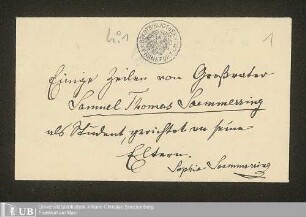 No 1
1
Einige Zeilen von Großvater
Samuel Thomas Soemmerring
als Student, gerichtet an seine
Eltern.
Sophie Soemmerring
UB
Universitätsbibliothek Johann Christian Senckenberg
Frankfurt am Main